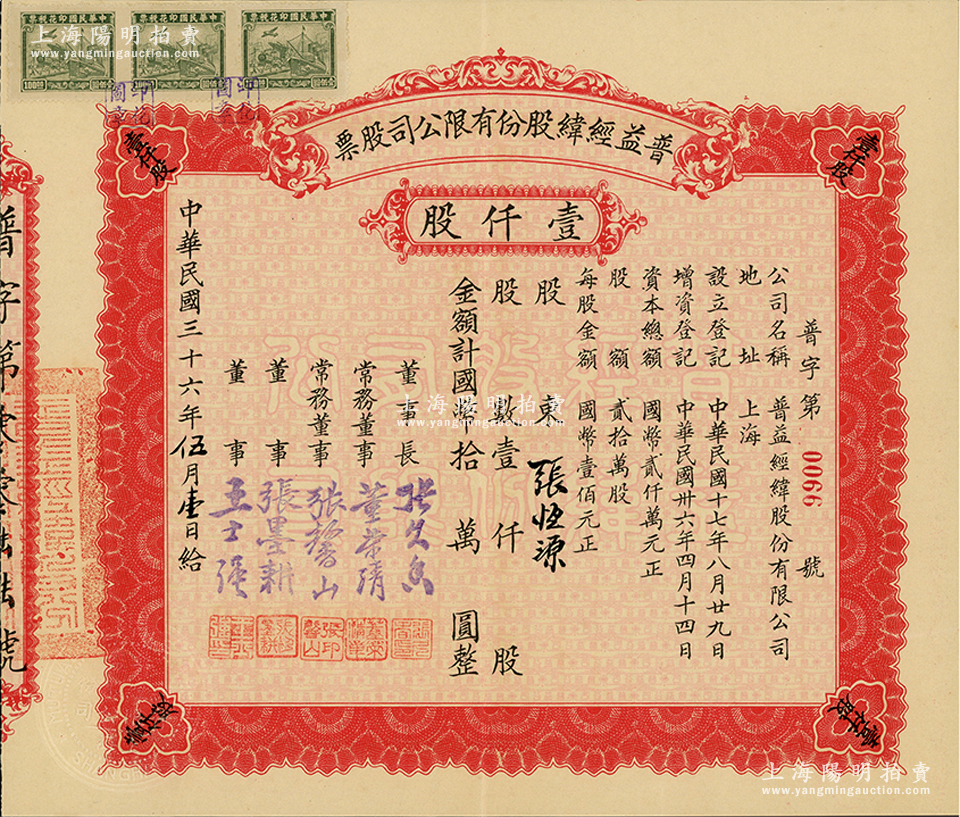 上海陽明拍賣
www.yangmingauction.com
中華民國印花稅票
中華民國印花稅票
中華民國印花稅票
100
100
普益經緯股份有限公司股票
壹仟股
壹仟股
壹仟股
普字第0066號
公司名稱 普益經緯股份有限公司
地址 上海
設立登記 中華民國十七年八月廿九日
增資登記 中華民國卅六年四月十四日
資本總額 國幣貳仟萬元正
股額 貳拾萬股
每股金額 國幣壹佰元正
股東 張恒源
股數壹仟股
金額計國幣拾萬圓整
董事長
常務董事 董榮清
常務董事 張馨山
董事 張墨耕
董事 王士強
中華民國三十六年伍月壹日給
上海陽明拍賣
www.yangmingauction.com
壹仟股
壹仟股
上海陽明拍賣
www.yangmingauction.com